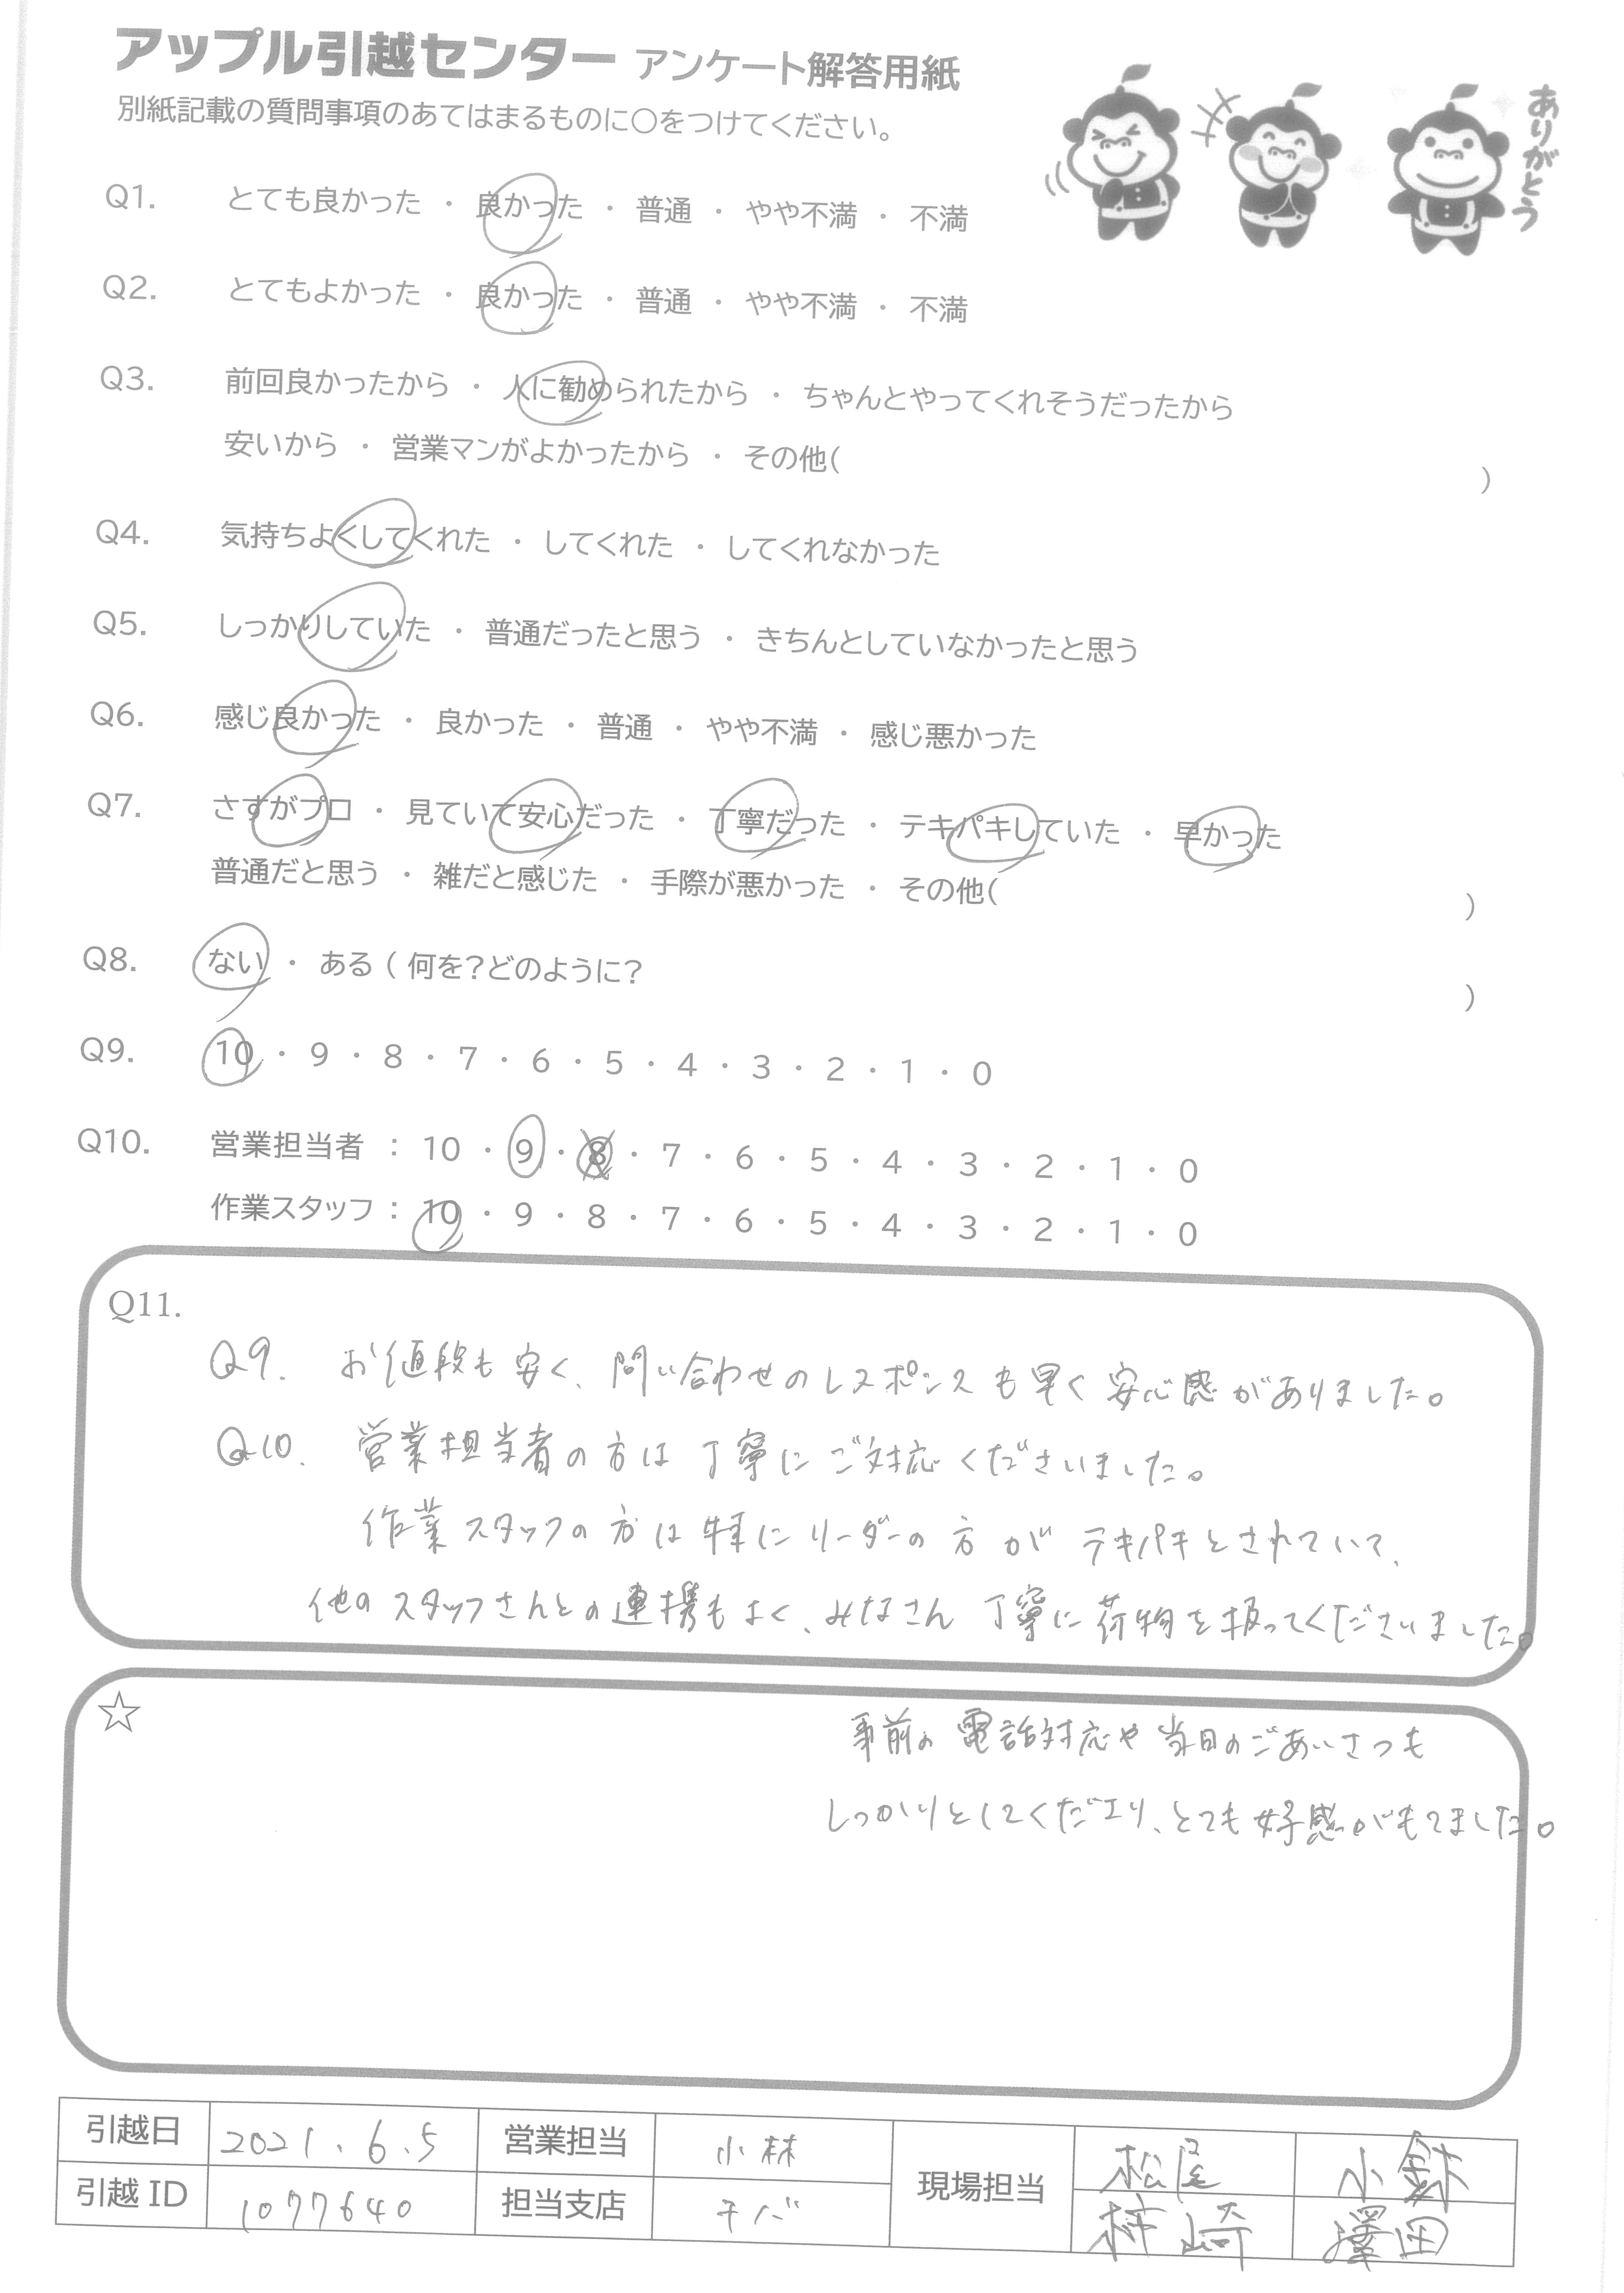 アップル引越センター アンケート解答用紙
別紙記載の質問事項のあてはまるものに○をつけてください。
ありがとう
Q1. とても良かった ・ 良かった ・ 普通 ・ やや不満 ・ 不満
Q2. とてもよかった ・ 良かった ・ 普通 ・ やや不満 ・ 不満
Q3. 前回良かったから ・ 人に勧められたから ・ ちゃんとやってくれそうだったから
安いから ・ 営業マンがよかったから ・ その他( )
Q4. 気持ちよくしてくれた ・ してくれた ・ してくれなかった
Q5. しっかりしていた ・ 普通だったと思う ・ きちんとしていなかったと思う
Q6. 感じ良かった ・ 良かった ・ 普通 ・ やや不満 ・ 感じ悪かった
Q7. さすがプロ ・ 見ていて安心だった ・ 丁寧だった ・ テキパキしていた ・ 早かった
普通だと思う ・ 雑だと感じた ・ 手際が悪かった ・ その他( )
Q8. ない ・ ある ( 何を?どのように? )
Q9. 10 ・ 9 ・ 8 ・ 7 ・ 6 ・ 5 ・ 4 ・ 3 ・ 2 ・ 1 ・ 0
Q10. 営業担当者 : 10 ・ 9 ・ 8 ・ 7 ・ 6 ・ 5 ・ 4 ・ 3 ・ 2 ・ 1 ・ 0
作業スタッフ : 10 ・ 9 ・ 8 ・ 7 ・ 6 ・ 5 ・ 4 ・ 3 ・ 2 ・ 1 ・ 0
Q11.
Q9. お値段も安く、問い合わせのレスポンスも早く安心感がありました。
Q10. 営業担当者の方は丁寧にご対応くださいました。
作業スタッフの方は特にリーダーの方がテキパキとされていて、
他のスタッフさんとの連携もよく、みなさん丁寧に荷物を扱ってくださいました。
☆
事前の電話対応や当日のごあいさつも
しっかりとしてくださり、とても好感がもてました。
引越日 2021.6.5 営業担当 小林 現場担当 松尾 小鉢
引越 ID 1077640 担当支店 チバ 柿崎 澤田